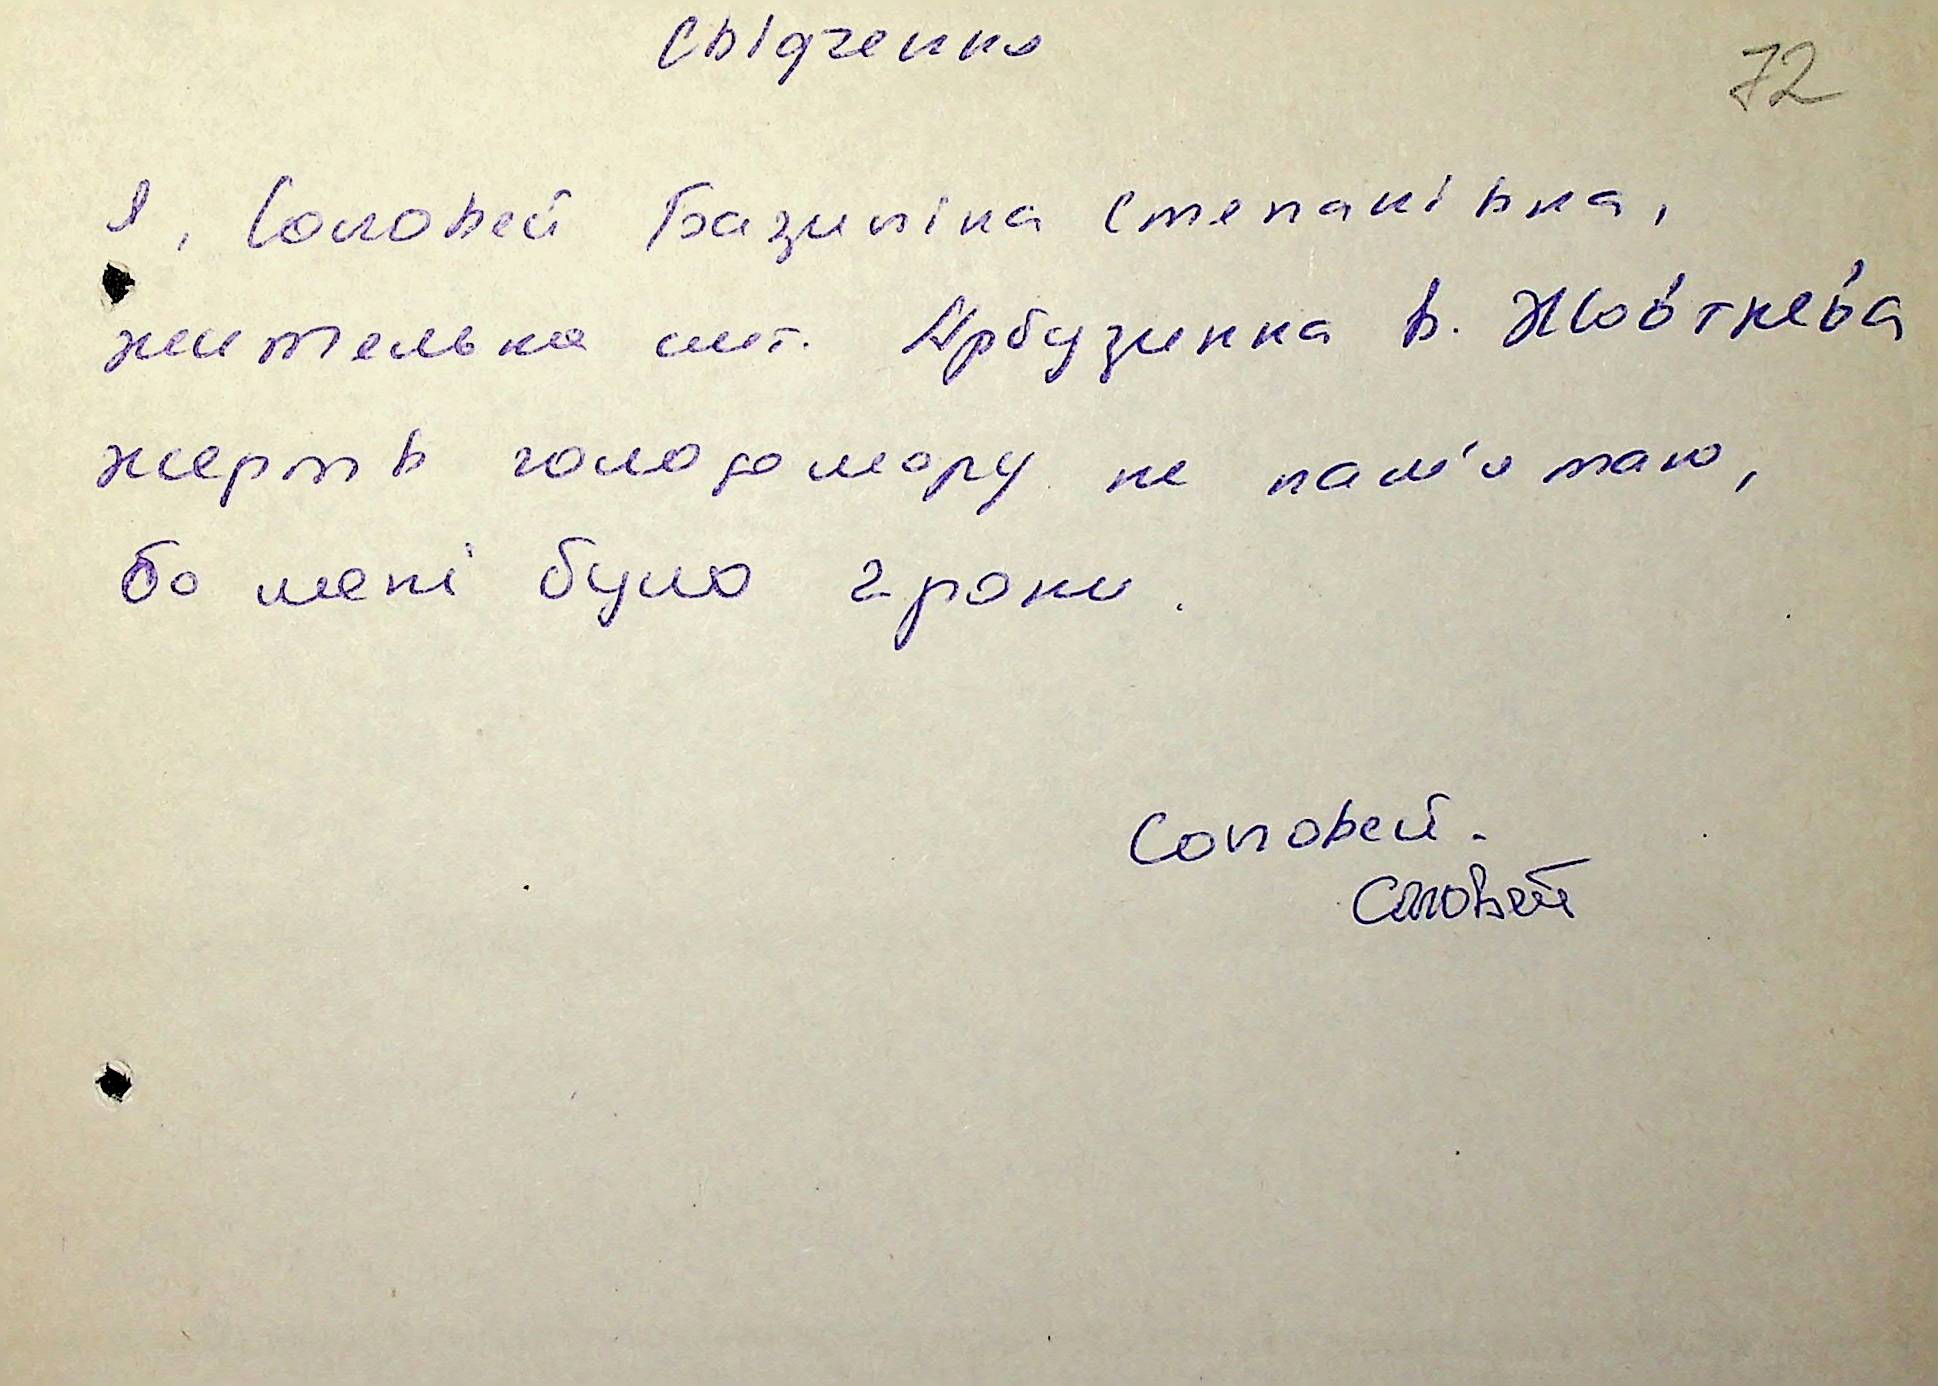 Свідчення
72
Я, Соловей Базиліна Степанівна,
жителька смт. Арбузинка в. Жовтнева
жертв голодомору не пам'ятаю,
бо мені було 2 роки.
Соловей.
Словей